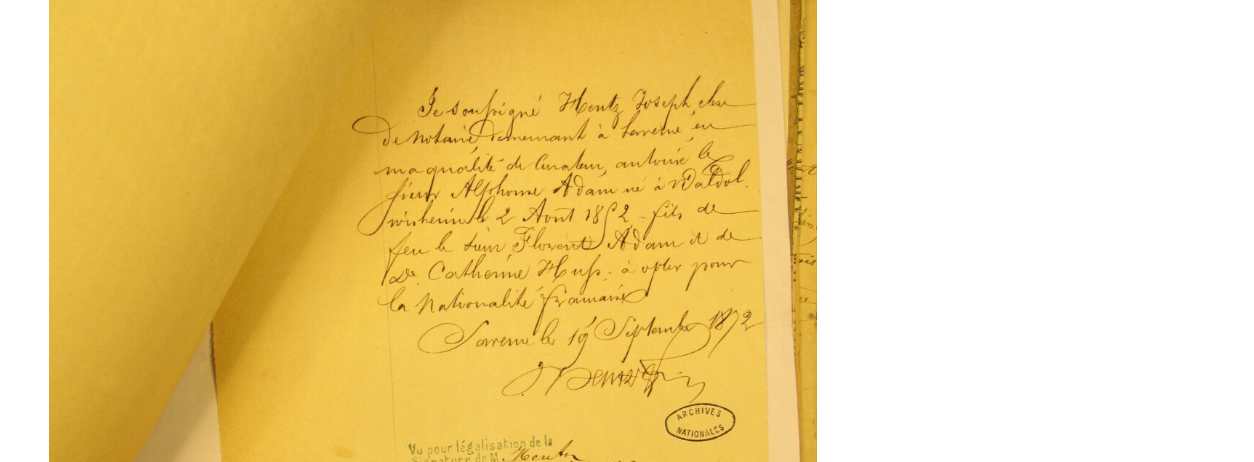 Je soussigné Hentz Joseph clerc
de Notaire demeurant à Saverne, en
ma qualité de Curateur, autorise le
sieur Alphonse Adam né à Waldol-
wisheim le 2 Août 1852, fils de
feu le sieur Florent Adam et de
De Catherine Huss, à opter pour
la Nationalité française
Saverne le 19 Septembre 1872
JHentz
ARCHIVES
NATIONALES
Vu pour légalisation de la
Signature de M. Hentz